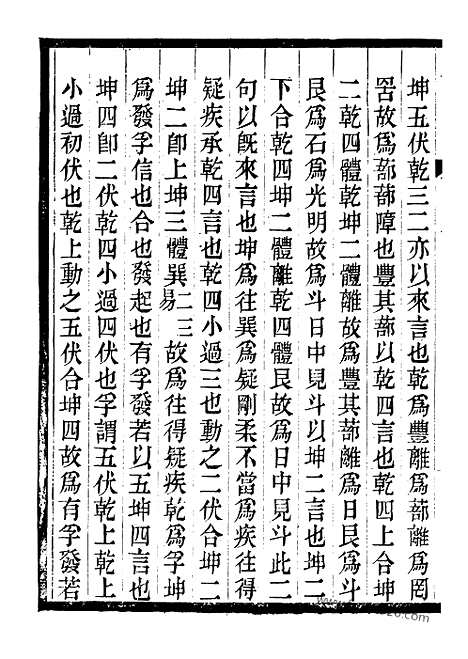 坤五伏乾三二亦以來言也乾爲豐離爲蔀離爲罔
罟故爲蔀蔀障也豐其蔀以乾四言也乾四上合坤
二乾四體乾坤二體離故爲豐其蔀離爲日艮爲斗
艮爲石爲光明故爲斗日中見斗以坤二言也坤二
下合乾四坤二體離乾四體艮故爲日中見斗此二
句以旣來言也坤爲往巽爲疑剛柔不當爲疾往得
疑疾承乾四言也乾四小過三也動之二伏合坤二
坤二卽上坤三體巽易二三故爲往得疑疾乾爲孚坤
爲發孚信也合也發起也有孚發若以五坤四言也
坤四卽二伏乾四小過四伏也孚謂五伏乾上乾上
小過初伏也乾上動之五伏合坤四故爲有孚發若